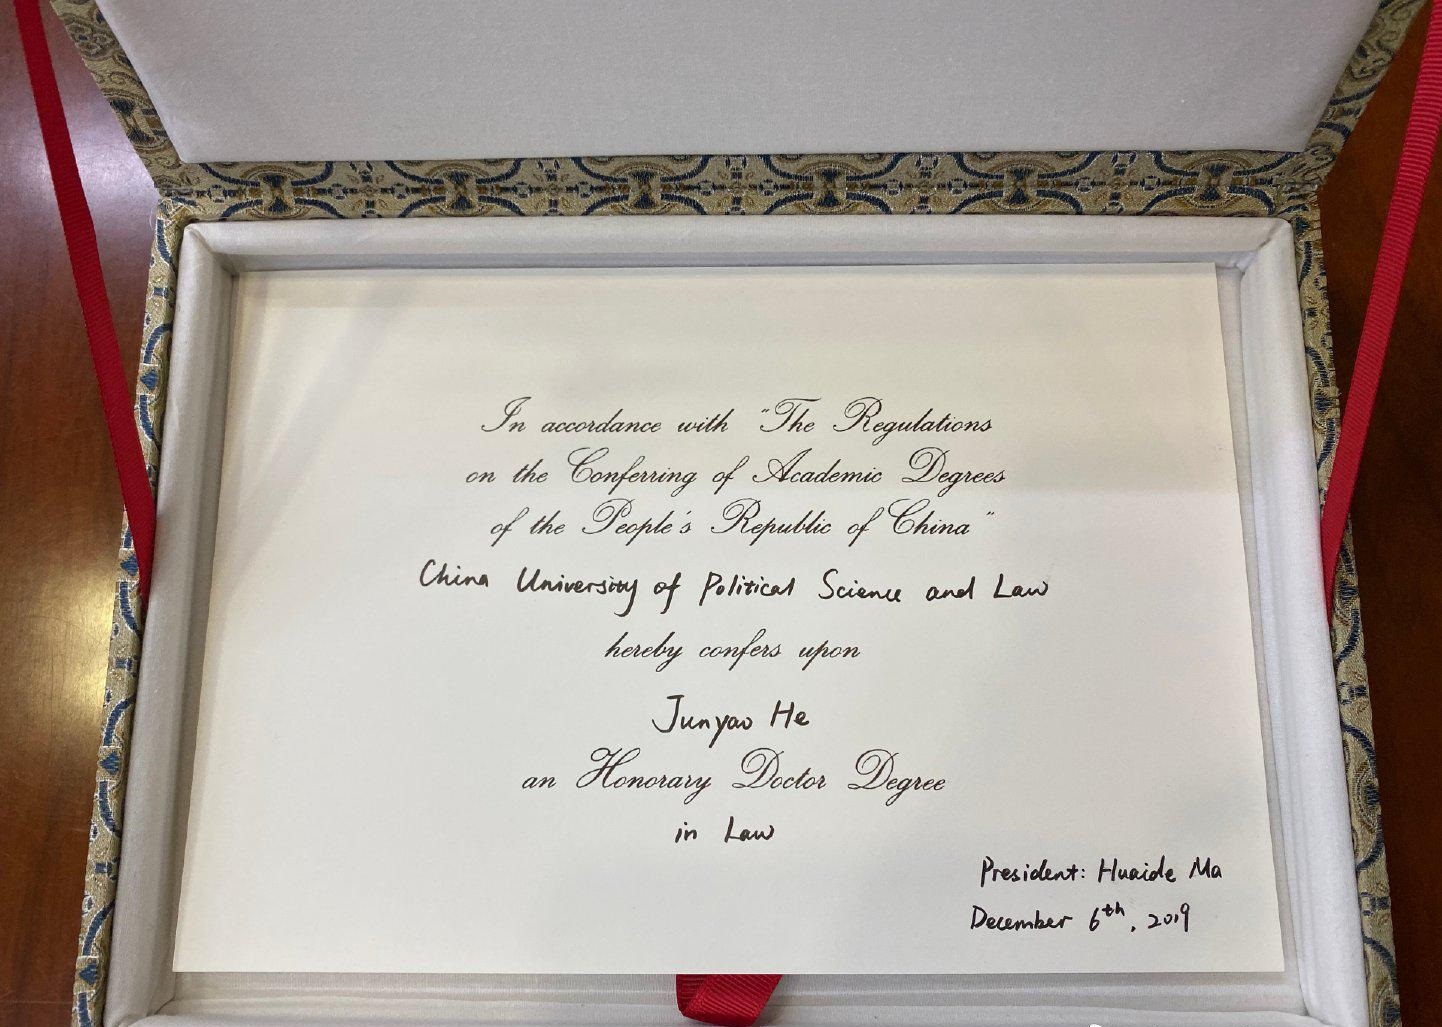 In accordance with "The Regulations
on the Conferring of Academic Degrees
of the People's Republic of China"
China University of Political Science and Law
hereby confers upon
Junyao He
an Honorary Doctor Degree
in Law
President: Huaide Ma
December 6th, 2019